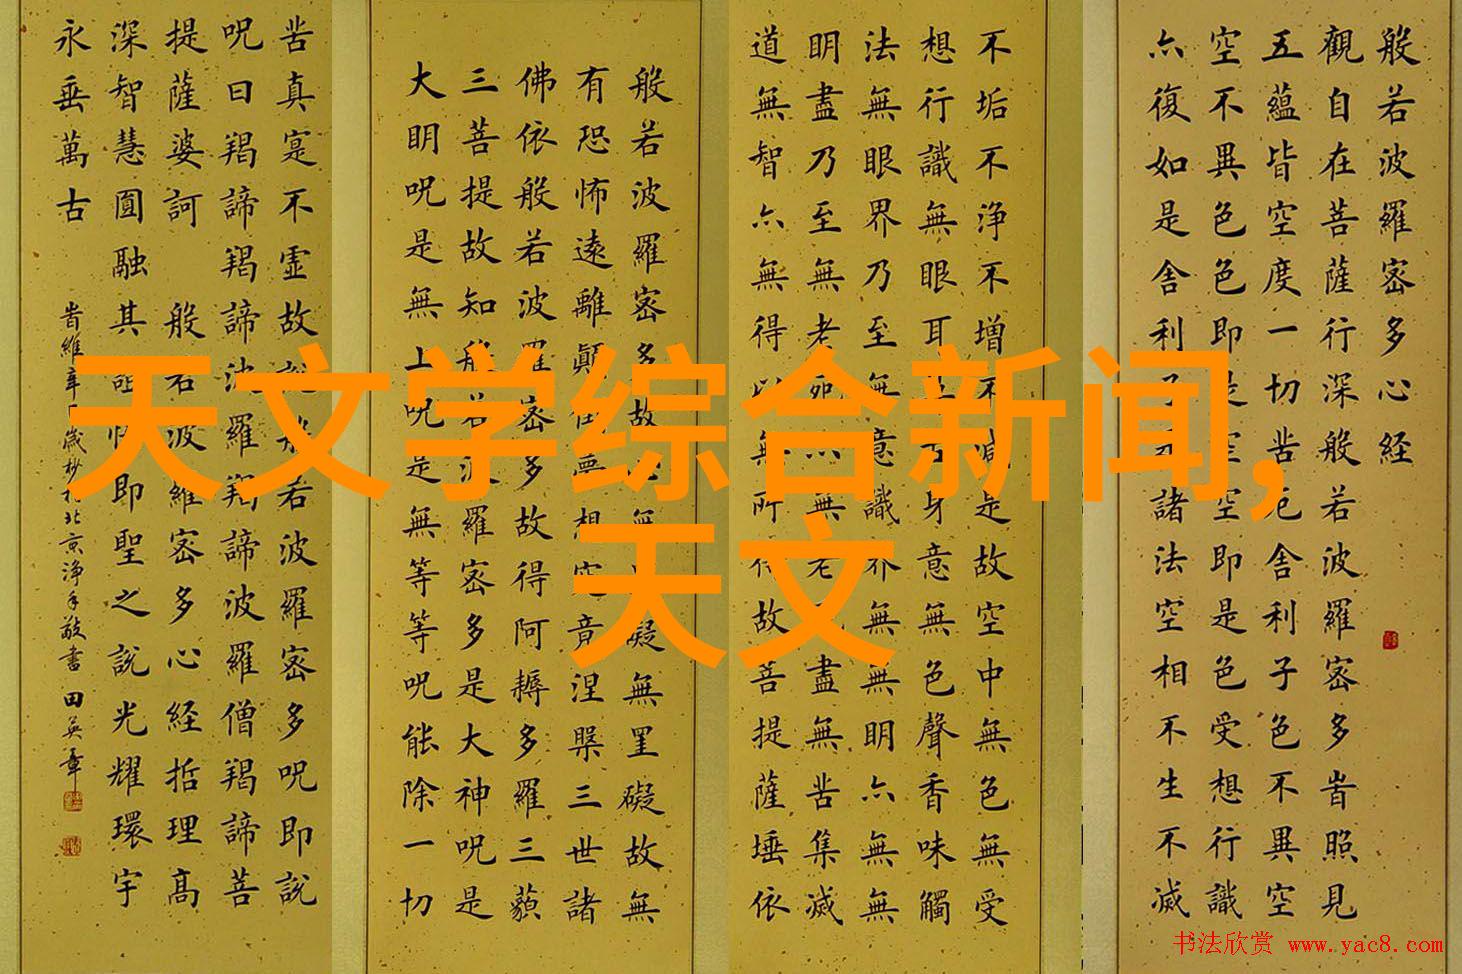 般若波羅密多心经
觀自在菩薩行深般若波羅密多旹照見
五蘊皆空度一切苦厄舍利子色不異空
空不異色色即是空空即是色受想行識
亦復如是舍利子是諸法空相不生不滅
不垢不浄不增不減是故空中無色無受
想行識無眼耳鼻舌身意無色聲香味觸
法無眼界乃至無意識界無無明亦無無
明盡乃至無老死亦無老死盡無苦集滅
道無智亦無得以無所得故菩提薩埵依
般若波羅密多故心無罣礙無罣礙故無
有恐怖遠離顛倒夢想究竟涅槃三世諸
佛依般若波羅密多故得阿耨多羅三藐
三菩提故知般若波羅密多是大神呪是
大明呪是無上呪是無等等呪能除一切
苦真寔不虛故説般若波羅密多呪即説
呪曰羯諦羯諦波羅羯諦波羅僧羯諦菩
提薩婆訶 般若波羅密多心経括理高
深智慧圓融其即聖之説光耀環宇
永垂萬古
旹維辛歲杪於北京浄手敬書 田英章
天文学综合新闻,
天文
书法欣赏 www.yac8.com